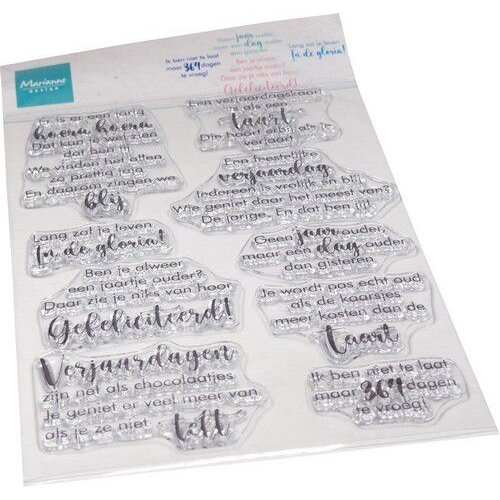 Marianne
design
Geen jaar ouder
maar een dag ouder
dan gisteren
Ik ben niet te laat
maar 364 dagen
te vroeg!
Ben je alweer
een jaartje ouder?
Daar zie je niks van hoor
Gefeliciteerd!
Lang zal je leven
In de gloria!
Er is er een jarig
hoera hoera
Dat kan je wel zien
dat
We vinden het allen
zo prettig
En daarom zingen we
blij
Een verjaardagskaart
is als een
taart
Die hoort erbij als je
verjaart
Een feestelijke
verjaardag
Iedereen is vrolijk en blij
Wie geniet daar het meest van?
De jarige. En dat ben jij!
Lang zal je leven
In de gloria!
Geen jaar ouder
maar een dag ouder
dan gisteren
Ben je alweer
een jaartje ouder?
Daar zie je niks van hoor
Gefeliciteerd!
Je wordt pas echt oud
als de kaarsjes
meer kosten dan de
taart
Verjaardagen
zijn net als chocolaatjes
Je geniet er veel meer van
als je ze niet
telt
Ik ben niet te laat
maar 364 dagen
te vroeg!